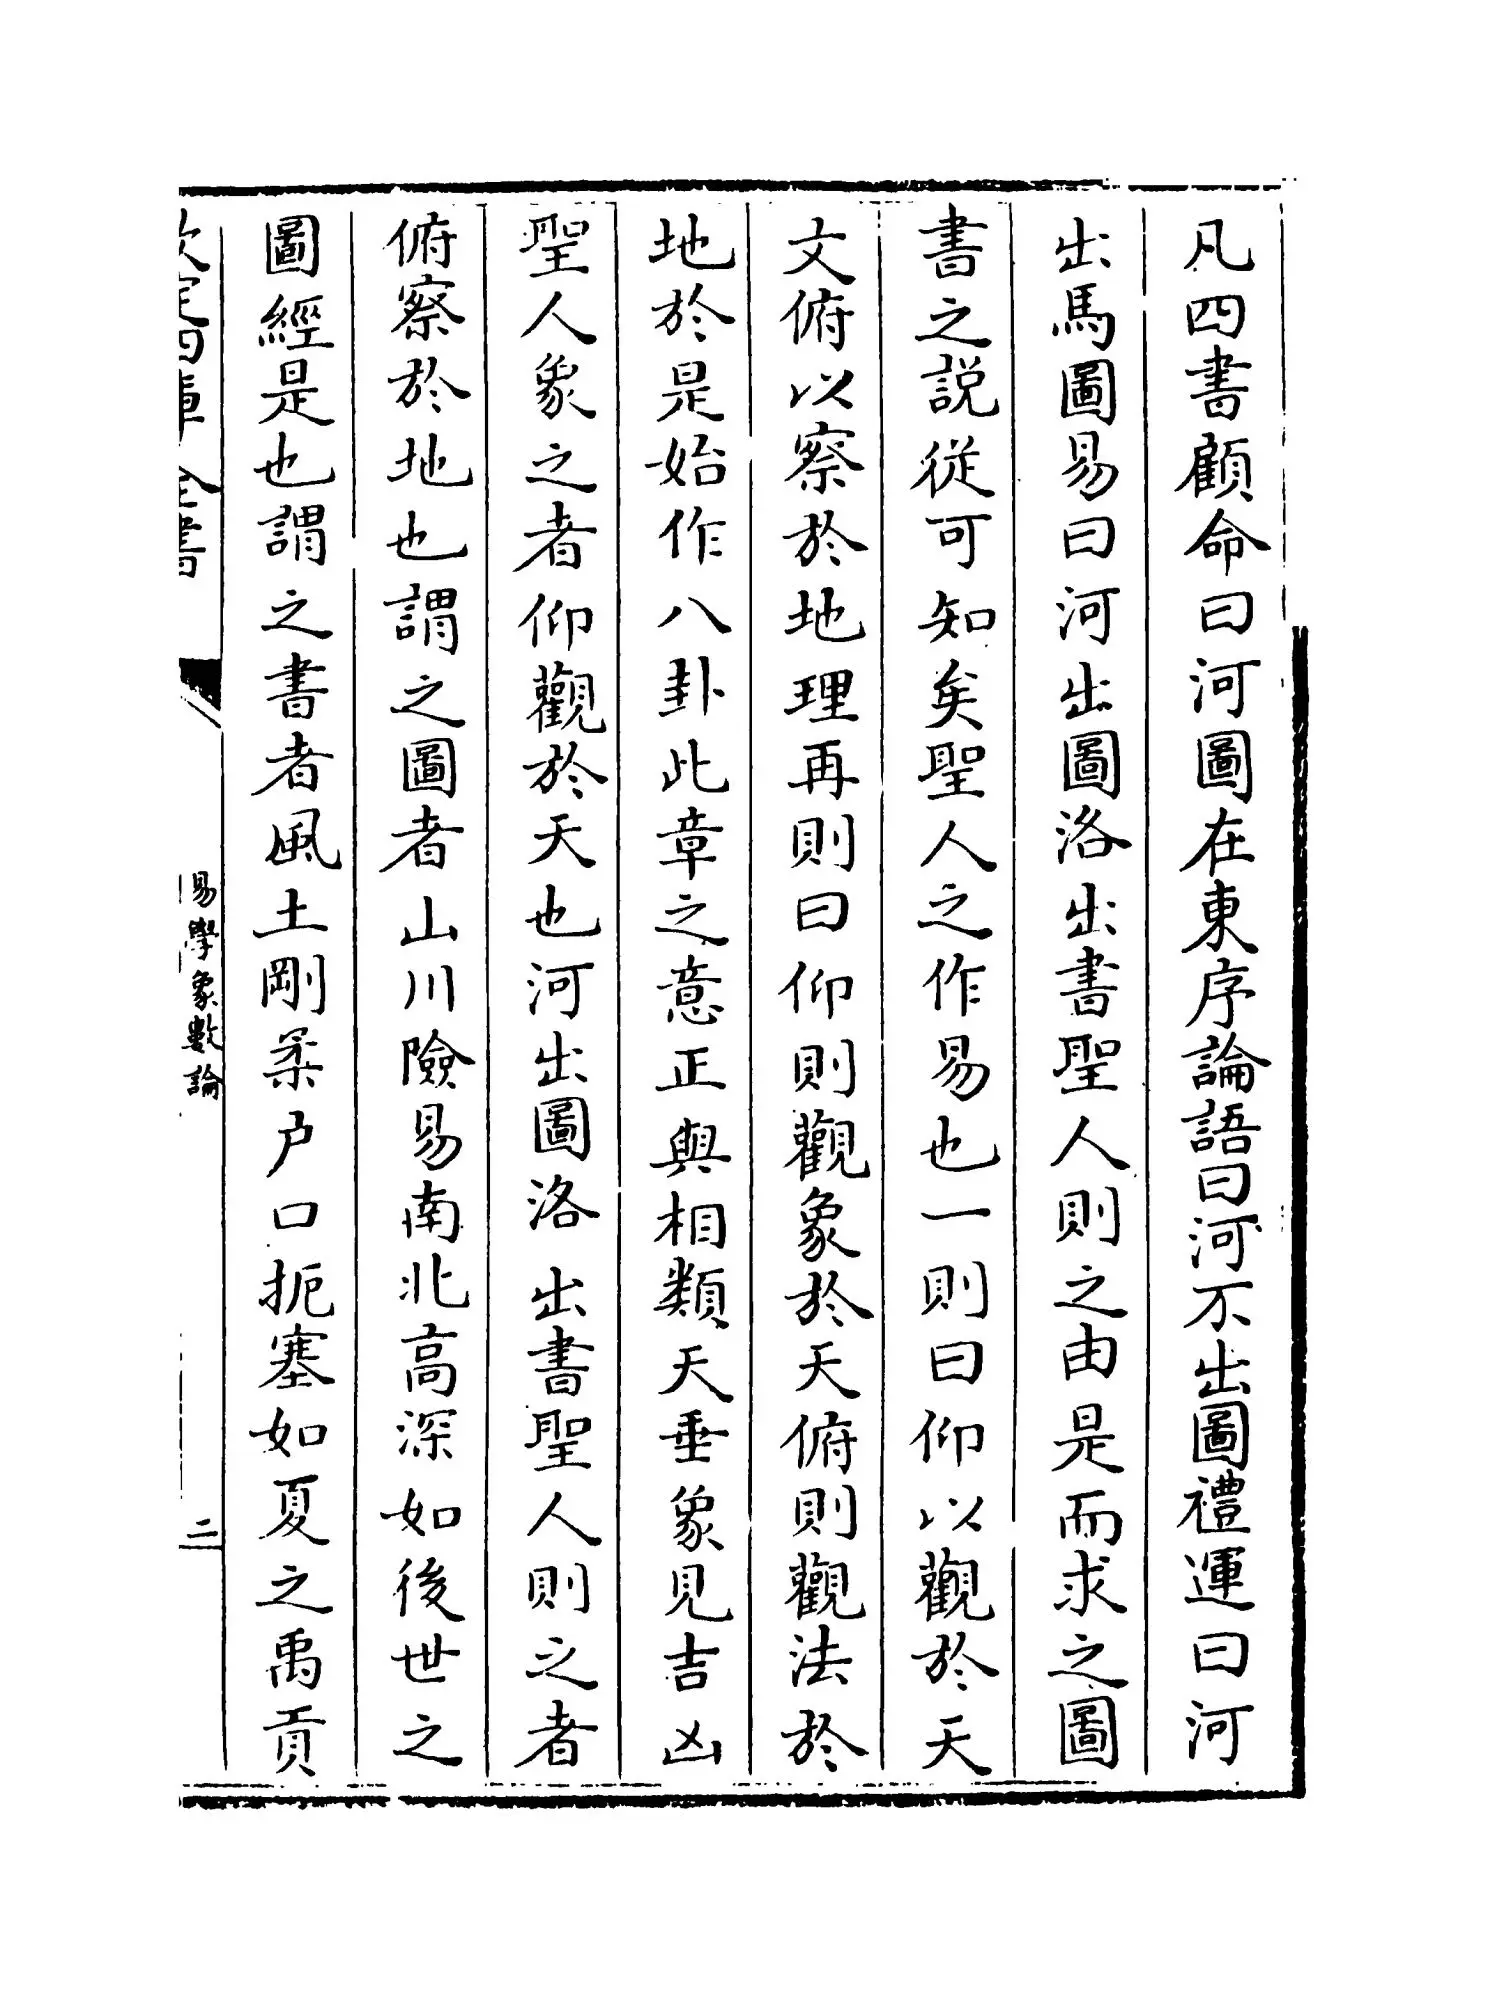 凡四書顧命曰河圖在東序論語曰河不出圖禮運曰河
出馬圖易曰河出圖洛出書聖人則之由是而求之圖
書之説從可知矣聖人之作易也一則曰仰以觀於天
文俯以察於地理再則曰仰則觀象於天俯則觀法於
地於是始作八卦此章之意正與相類天垂象見吉凶
聖人象之者仰觀於天也河出圖洛出書聖人則之者
俯察於地也謂之圖者山川險易南北高深如後世之
圖經是也謂之書者風土剛柔户口扼塞如夏之禹貢
欽定四庫全書
易學象數論
二